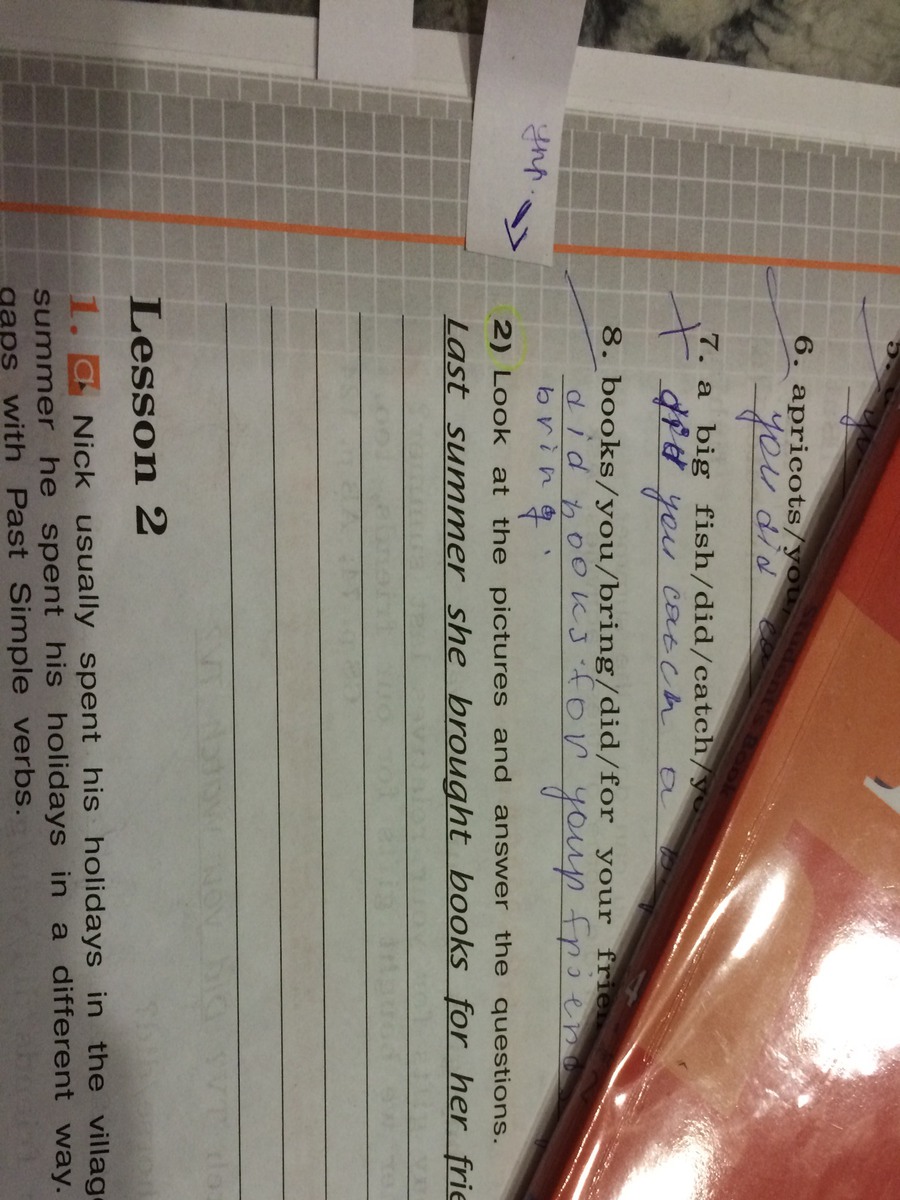 упр.
5.
6. apricots/you
you did
7. a big fish/did/catch/yo
did you catch a
8. books/you/bring/did/for your frien
did books for your friend
bring.
2) Look at the pictures and answer the questions.
Last summer she brought books for her frie
Lesson 2
1. a Nick usually spent his holidays in the villag
summer he spent his holidays in a different way.
gaps with Past Simple verbs.
4